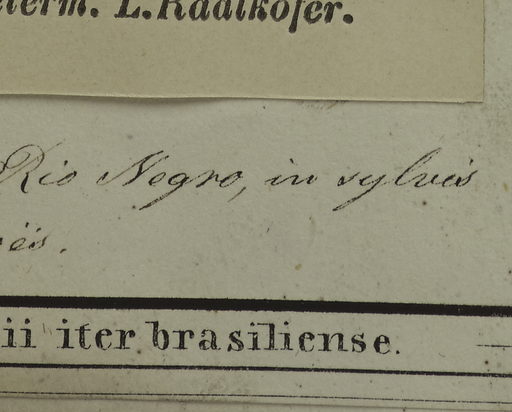 determ. L. Radlkofer.
Rio Negro, in sylvis
ës.
ii iter brasiliense.